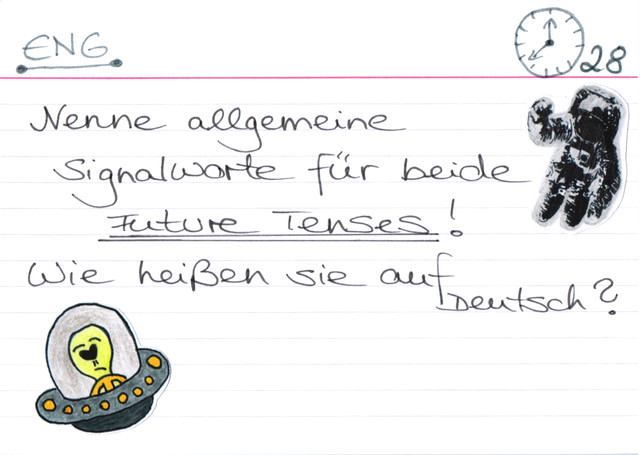 ENG
28
Nenne allgemeine
Signalworte für beide
Future Tenses!
Wie heißen sie auf
Deutsch?